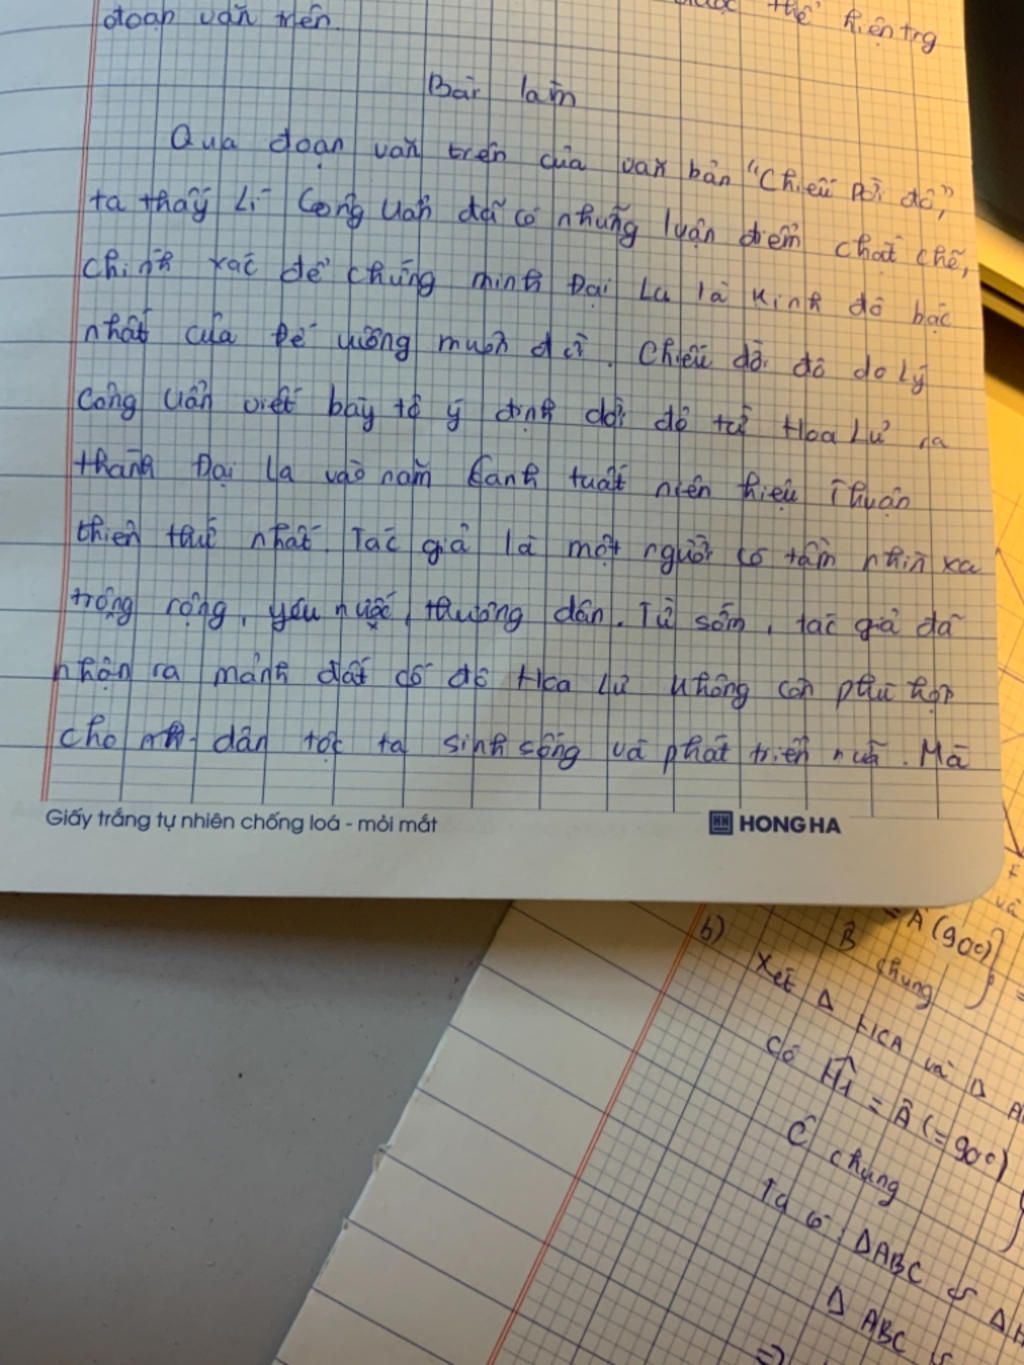 thể hiện trg
đoạn văn trên.
Bài làm
Qua đoạn văn trên của văn bản "Chiếu Dời đô",
ta thấy Lí Công Uẩn đã có những luận điểm chặt chẽ,
chính xác để chứng minh Đại La là kinh đô bậc
nhất của Đế vương muôn đời. Chiếu dời đô do Lý
Công Uẩn viết bày tỏ ý định dời đô từ Hoa Lư ra
thành Đại La vào năm Canh tuất niên hiệu Thuận
thiên thứ nhất. Tác giả là một người có tầm nhìn xa
trộng rộng, yêu nước, thương dân. Từ sớm, tác giả đã
nhận ra mảnh đất cố đô Hoa Lư không còn phù hợp
cho dân tộc ta sinh sống và phát triển nữa. Mà
Giấy trắng tự nhiên chống loá - mỏi mắt
HONG HA
= Â (90°)
B̂ chung
b) Xét Δ HCA và Δ
có Ĥ1 = Â (= 90°)
Ĉ chung
Ta có: ΔABC ∽ Δ
Δ ABC ∽
⇒